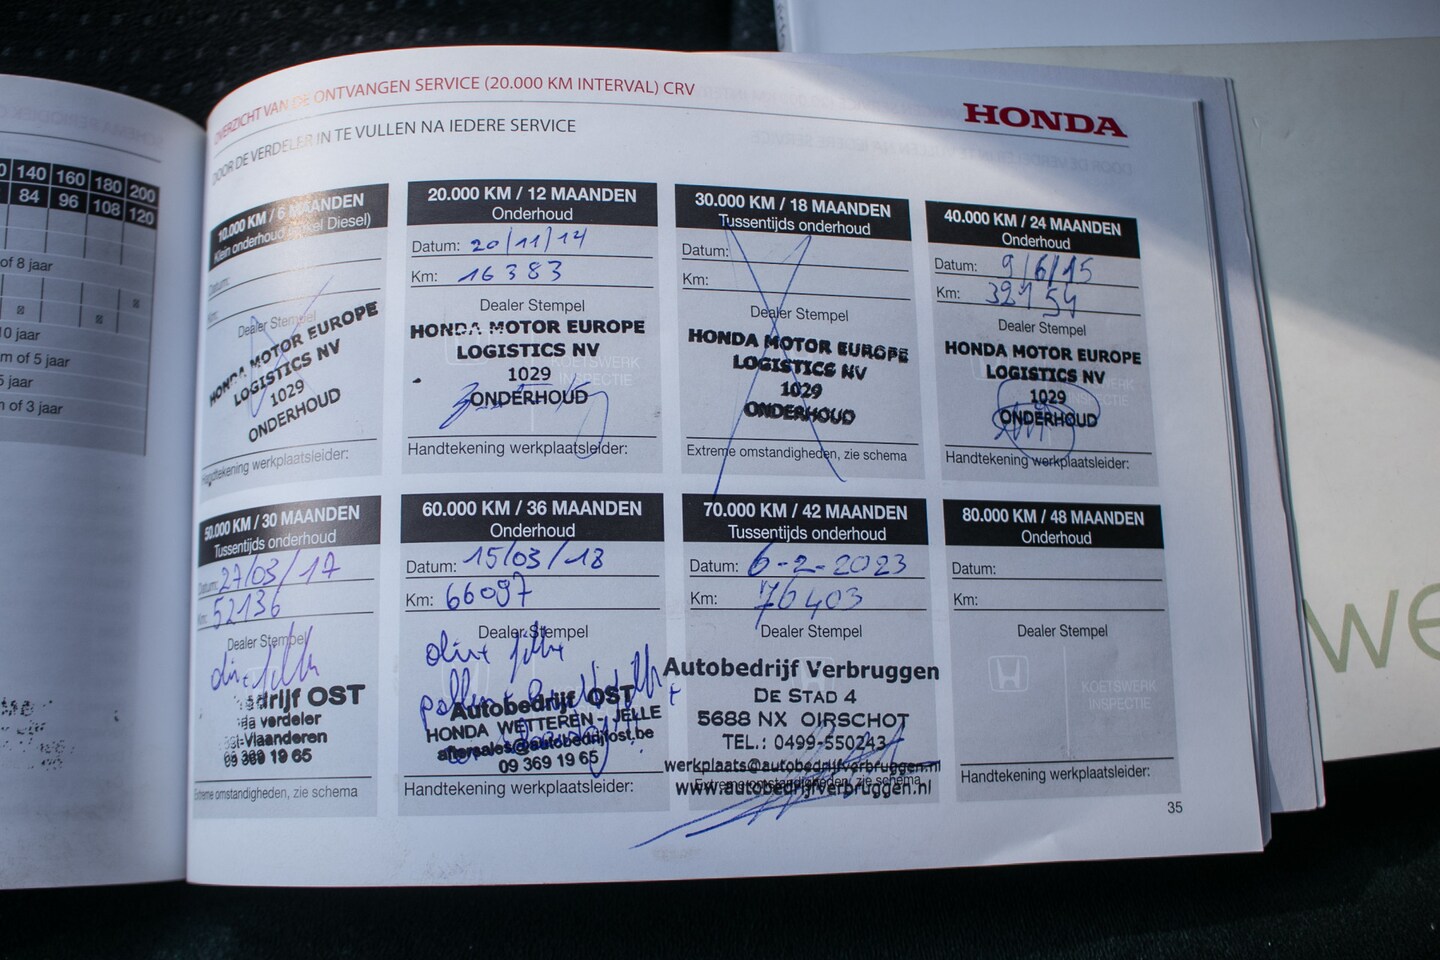 140 160 180 200
84 96 108 120
of 8 jaar
10 jaar
m of 5 jaar
5 jaar
m of 3 jaar
OVERZICHT VAN DE ONTVANGEN SERVICE (20.000 KM INTERVAL) CRV
HONDA
DOOR DE VERDELER IN TE VULLEN NA IEDERE SERVICE
10.000 KM / 6 MAANDEN
Klein onderhoud (enkel Diesel)
Datum:
Km:
Dealer Stempel
HONDA MOTOR EUROPE
LOGISTICS NV
1029
ONDERHOUD
Handtekening werkplaatsleider:
20.000 KM / 12 MAANDEN
Onderhoud
Datum: 20/11/14
Km: 16383
Dealer Stempel
HONDA MOTOR EUROPE
LOGISTICS NV
KOETSWERK
INSPECTIE
1029
ONDERHOUD
Handtekening werkplaatsleider:
30.000 KM / 18 MAANDEN
Tussentijds onderhoud
Datum:
Km:
Dealer Stempel
HONDA MOTOR EUROPE
LOGISTICS NV
1029
ONDERHOUD
Extreme omstandigheden, zie schema
40.000 KM / 24 MAANDEN
Onderhoud
Datum: 9/6/15
Km: 32154
Dealer Stempel
HONDA MOTOR EUROPE
LOGISTICS NV
1029
ONDERHOUD
Handtekening werkplaatsleider:
50.000 KM / 30 MAANDEN
Tussentijds onderhoud
Datum: 27/03/17
Km: 52136
Dealer Stempel
drijf OST
da verdeler
st-Vlaanderen
09 369 19 65
Extreme omstandigheden, zie schema
60.000 KM / 36 MAANDEN
Onderhoud
Datum: 15/03/18
Km: 66097
Dealer Stempel
Autobedrijf OST
HONDA WETTEREN - JELLE
aftersales@autobedrijfost.be
09 369 19 65
Handtekening werkplaatsleider:
70.000 KM / 42 MAANDEN
Tussentijds onderhoud
Datum: 6-2-2023
Km: 76403
Dealer Stempel
Autobedrijf Verbruggen
DE STAD 4
5688 NX OIRSCHOT
TEL.: 0499-550243
werkplaats@autobedrijfverbruggen.nl
Extreme omstandigheden, zie schema
www.autobedrijfverbruggen.nl
80.000 KM / 48 MAANDEN
Onderhoud
Datum:
Km:
Dealer Stempel
KOETSWERK
INSPECTIE
Handtekening werkplaatsleider:
35
we